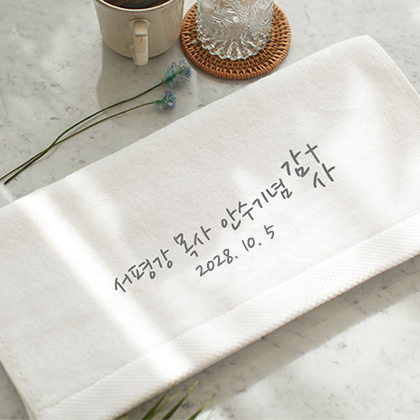 서평강 목사 안수기념 감사
2028. 10. 5